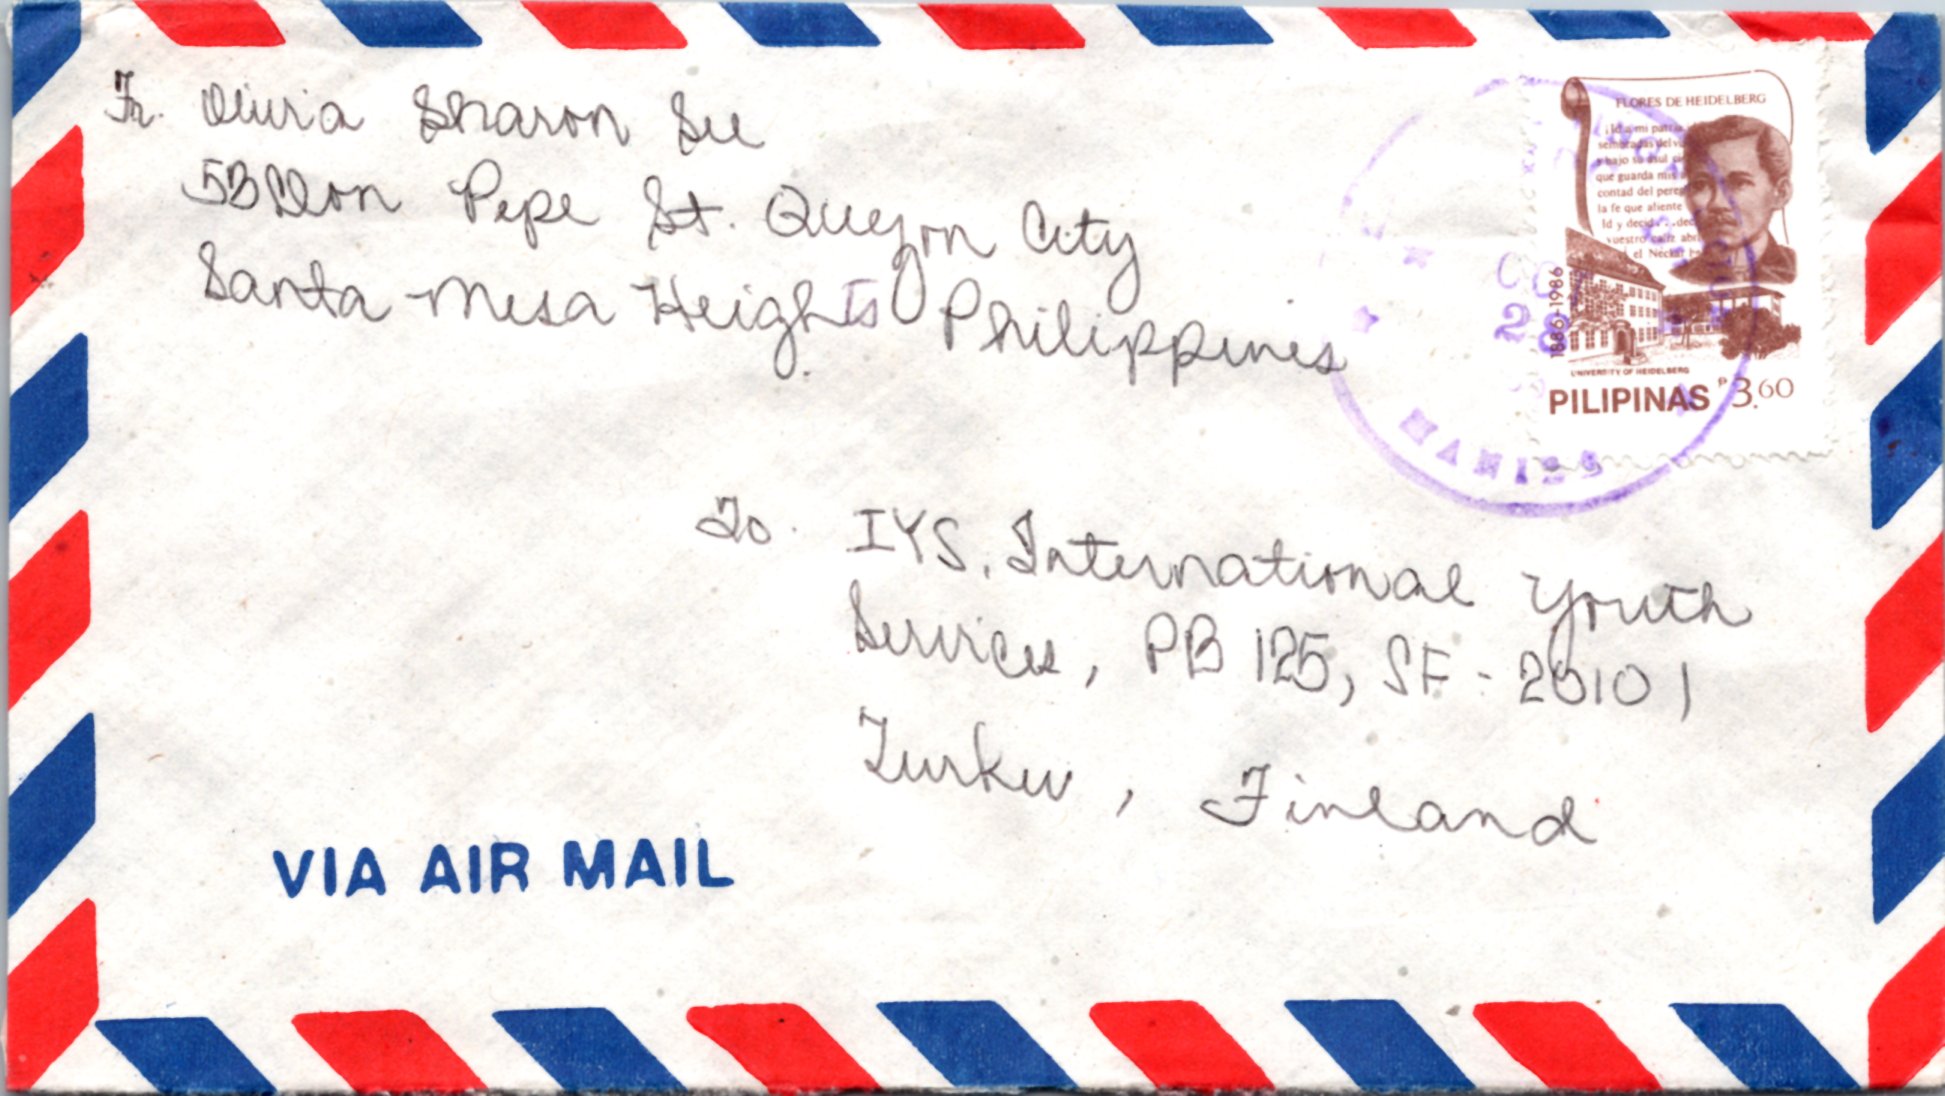 Fr. Olivia Sharon See
53 Don Pepe St. Quezon City
Santa Mesa Heights Philippines
FLORES DE HEIDELBERG
¡Id a mi patria
sembradas del
y bajo su azul
que guarda mis
contad del
la fe que aliente
Id y decid...
vuestro cáliz
el Neckar
1886-1986
UNIVERSITY OF HEIDELBERG
PILIPINAS P3.60
28
MANILA
To. IYS, International Youth
Services, PB 125, SF - 20101
Turku, Finland
VIA AIR MAIL